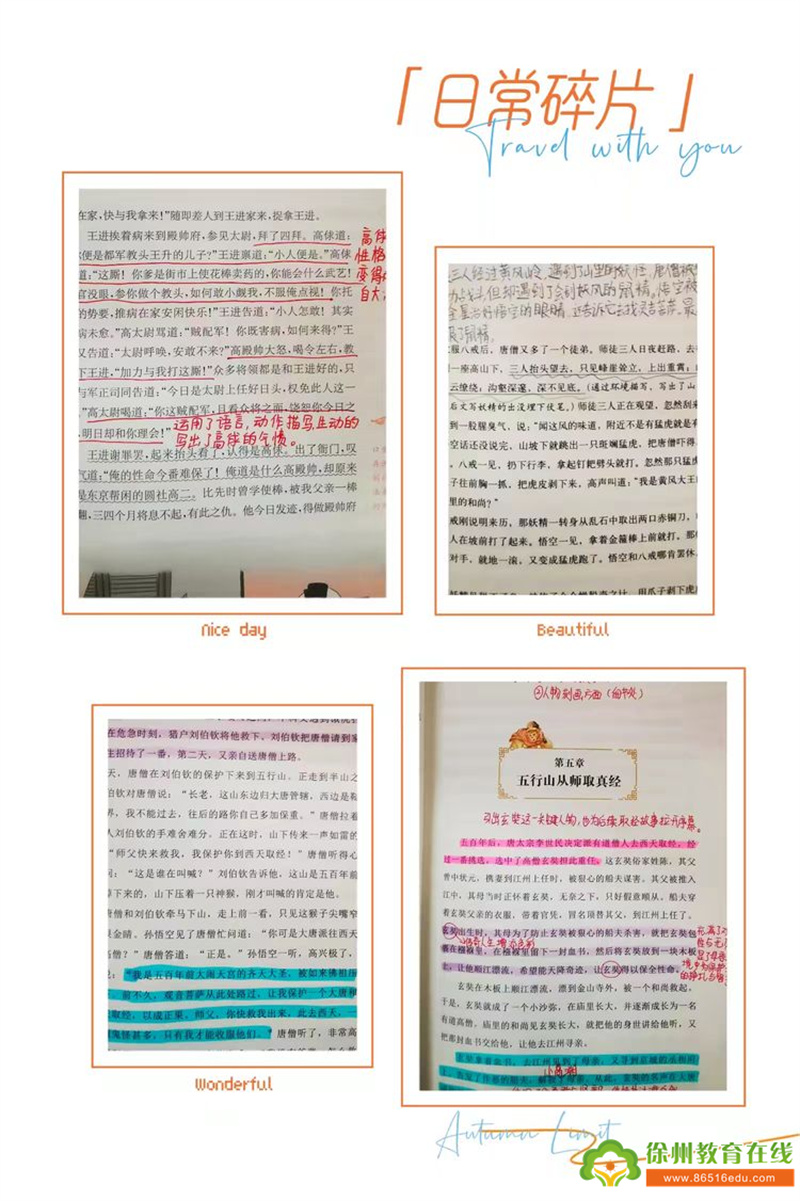 「日常碎片」
Travel with you
在家,快与我拿来!”随即差人到王进家来,捉拿王进。
王进挨着病来到殿帅府,参见太尉,拜了四拜。高俅道:
便是都军教头王升的儿子?”王进禀道:“小人便是。”高俅
道:“这厮!你爹是街市上使花棒卖药的,你能会什么武艺!
官没眼,参你做个教头,如何敢小觑我,不服俺点视!你托
的势要,推病在家安闲快乐!”王进告道:“小人怎敢!其实
病未愈。”高太尉骂道:“贼配军!你既害病,如何来得?”王
又告道:“太尉呼唤,安敢不来?”高殿帅大怒,喝令左右,教
下王进,“加力与我打这厮!”众多将领都是和王进好的,只
与军正司同告道:“今日是太尉上任好日头,权免此人这一
。”高太尉喝道:“你这贼配军,且看众将之面,饶恕你今日之
,明日却和你理会!”
王进谢罪罢,起来抬头看了,认得是高俅。出了衙门,叹
气道:“俺的性命今番难保了!俺道是什么高殿帅,却原来
是东京帮闲的圆社高二。比先时曾学使棒,被我父亲一棒
翻,三四个月将息不起,有此之仇。他今日发迹,得做殿帅府
高俅
性格
变得
自大
运用了语言,动作描写,生动的
写出了高俅的气愤。
Nice day
三人经过黄风岭,遇到山里的妖怪,唐僧被
收服八戒后,唐僧又多了一个徒弟,师徒三人日夜赶路,去
一座高山下,三人抬头望去,只见峰崖耸立,上出重霄;
云缭绕,沟壑深邃,深不见底。(通过环境描写,写出了山
后文写妖精的出没埋下伏笔。)师徒三人正在观望,忽然刮来
到一股腥臭气,说:“闻这风的味道,附近不是有猛虎就是有
空话还没说完,山坡下就跳出一只斑斓猛虎,把唐僧吓得
。八戒一见,扔下行李,拿起钉耙劈头就打。忽然那只猛虎
子往前胸一抓,把虎皮剥下来,高声叫道:“我是黄风大王
里的和尚?”
戒刚说明来历,那妖精一转身从乱石中取出两口赤铜刀,
人在坡前打了起来。悟空一见,拿着金箍棒上前就打。那
对手,就地一滚,又变成猛虎跑了。悟空和八戒哪肯罢休,
Beautiful
在危急时刻,猎户刘伯钦将他救下。刘伯钦把唐僧请到家
生招待了一番,第二天,又亲自送唐僧上路。
天,唐僧在刘伯钦的保护下来到五行山。正走到半山之
伯钦对唐僧说:“长老,这山东边归大唐管辖,西边是鞑
界,我不能过去,往后的路你自己多加保重。”唐僧拉着
人刘伯钦的手难舍难分。正在这时,山下传来一声如雷的
“师父快来救我,我保护你到西天取经!”唐僧听得心
问:“这是谁在叫喊?”刘伯钦告诉他,这山是五百年前
降下来的,山下压着一只神猴,刚才叫喊的肯定是他。
唐僧和刘伯钦牵马下山,走上前一看,只见这猴子尖嘴窄
眼金睛。孙悟空见了唐僧忙问道:“你可是大唐派往西天
高僧?”唐僧答道:“正是。”孙悟空一听,高兴极了,
说:“我是五百年前大闹天宫的齐天大圣,被如来佛祖压
。前不久,观音菩萨从此处路过,让我保护一个大唐和
取经,以成正果。师父,你快救我出来,此去西天,
鬼怪甚多,只有我才能收服他们。”唐僧听了,非常高
Wonderful
②人物刻画方面(画中处)
第五章
五行山从师取真经
写出玄奘这一关键人物,也为后续取经故事拉开序幕。
五百年后,唐太宗李世民决定派有道僧人去西天取经,经
过一番挑选,选中了高僧玄奘担此重任。这玄奘俗家姓陈,其父
曾中状元,携妻到江州上任时,被狠心的船夫谋害。其父被推入
江中,其母当时正怀着玄奘,无奈之下,只好假意顺从。船夫穿
着玄奘父亲的衣服,带着官凭,冒名顶替其父,到江州上任了。
玄奘出生时,其母为了防止玄奘被狠心的船夫杀害,就把玄奘包
着在襁褓里,在襁褓里留下一封血书,然后将玄奘放到一块木板
上,让他顺江漂流,希望能天降奇迹,让玄奘得以保全性命。
玄奘在木板上顺江漂流,漂到金山寺外,被一个和尚救起。
于是,玄奘就成了一个小沙弥,在庙里长大,并逐渐成长为一名
有道高僧。庙里的和尚见玄奘长大,就把他的身世讲给他听,又
把那封血书交给他,让他去江州寻亲。
Autumn Limit
徐州教育在线
www.86516edu.com